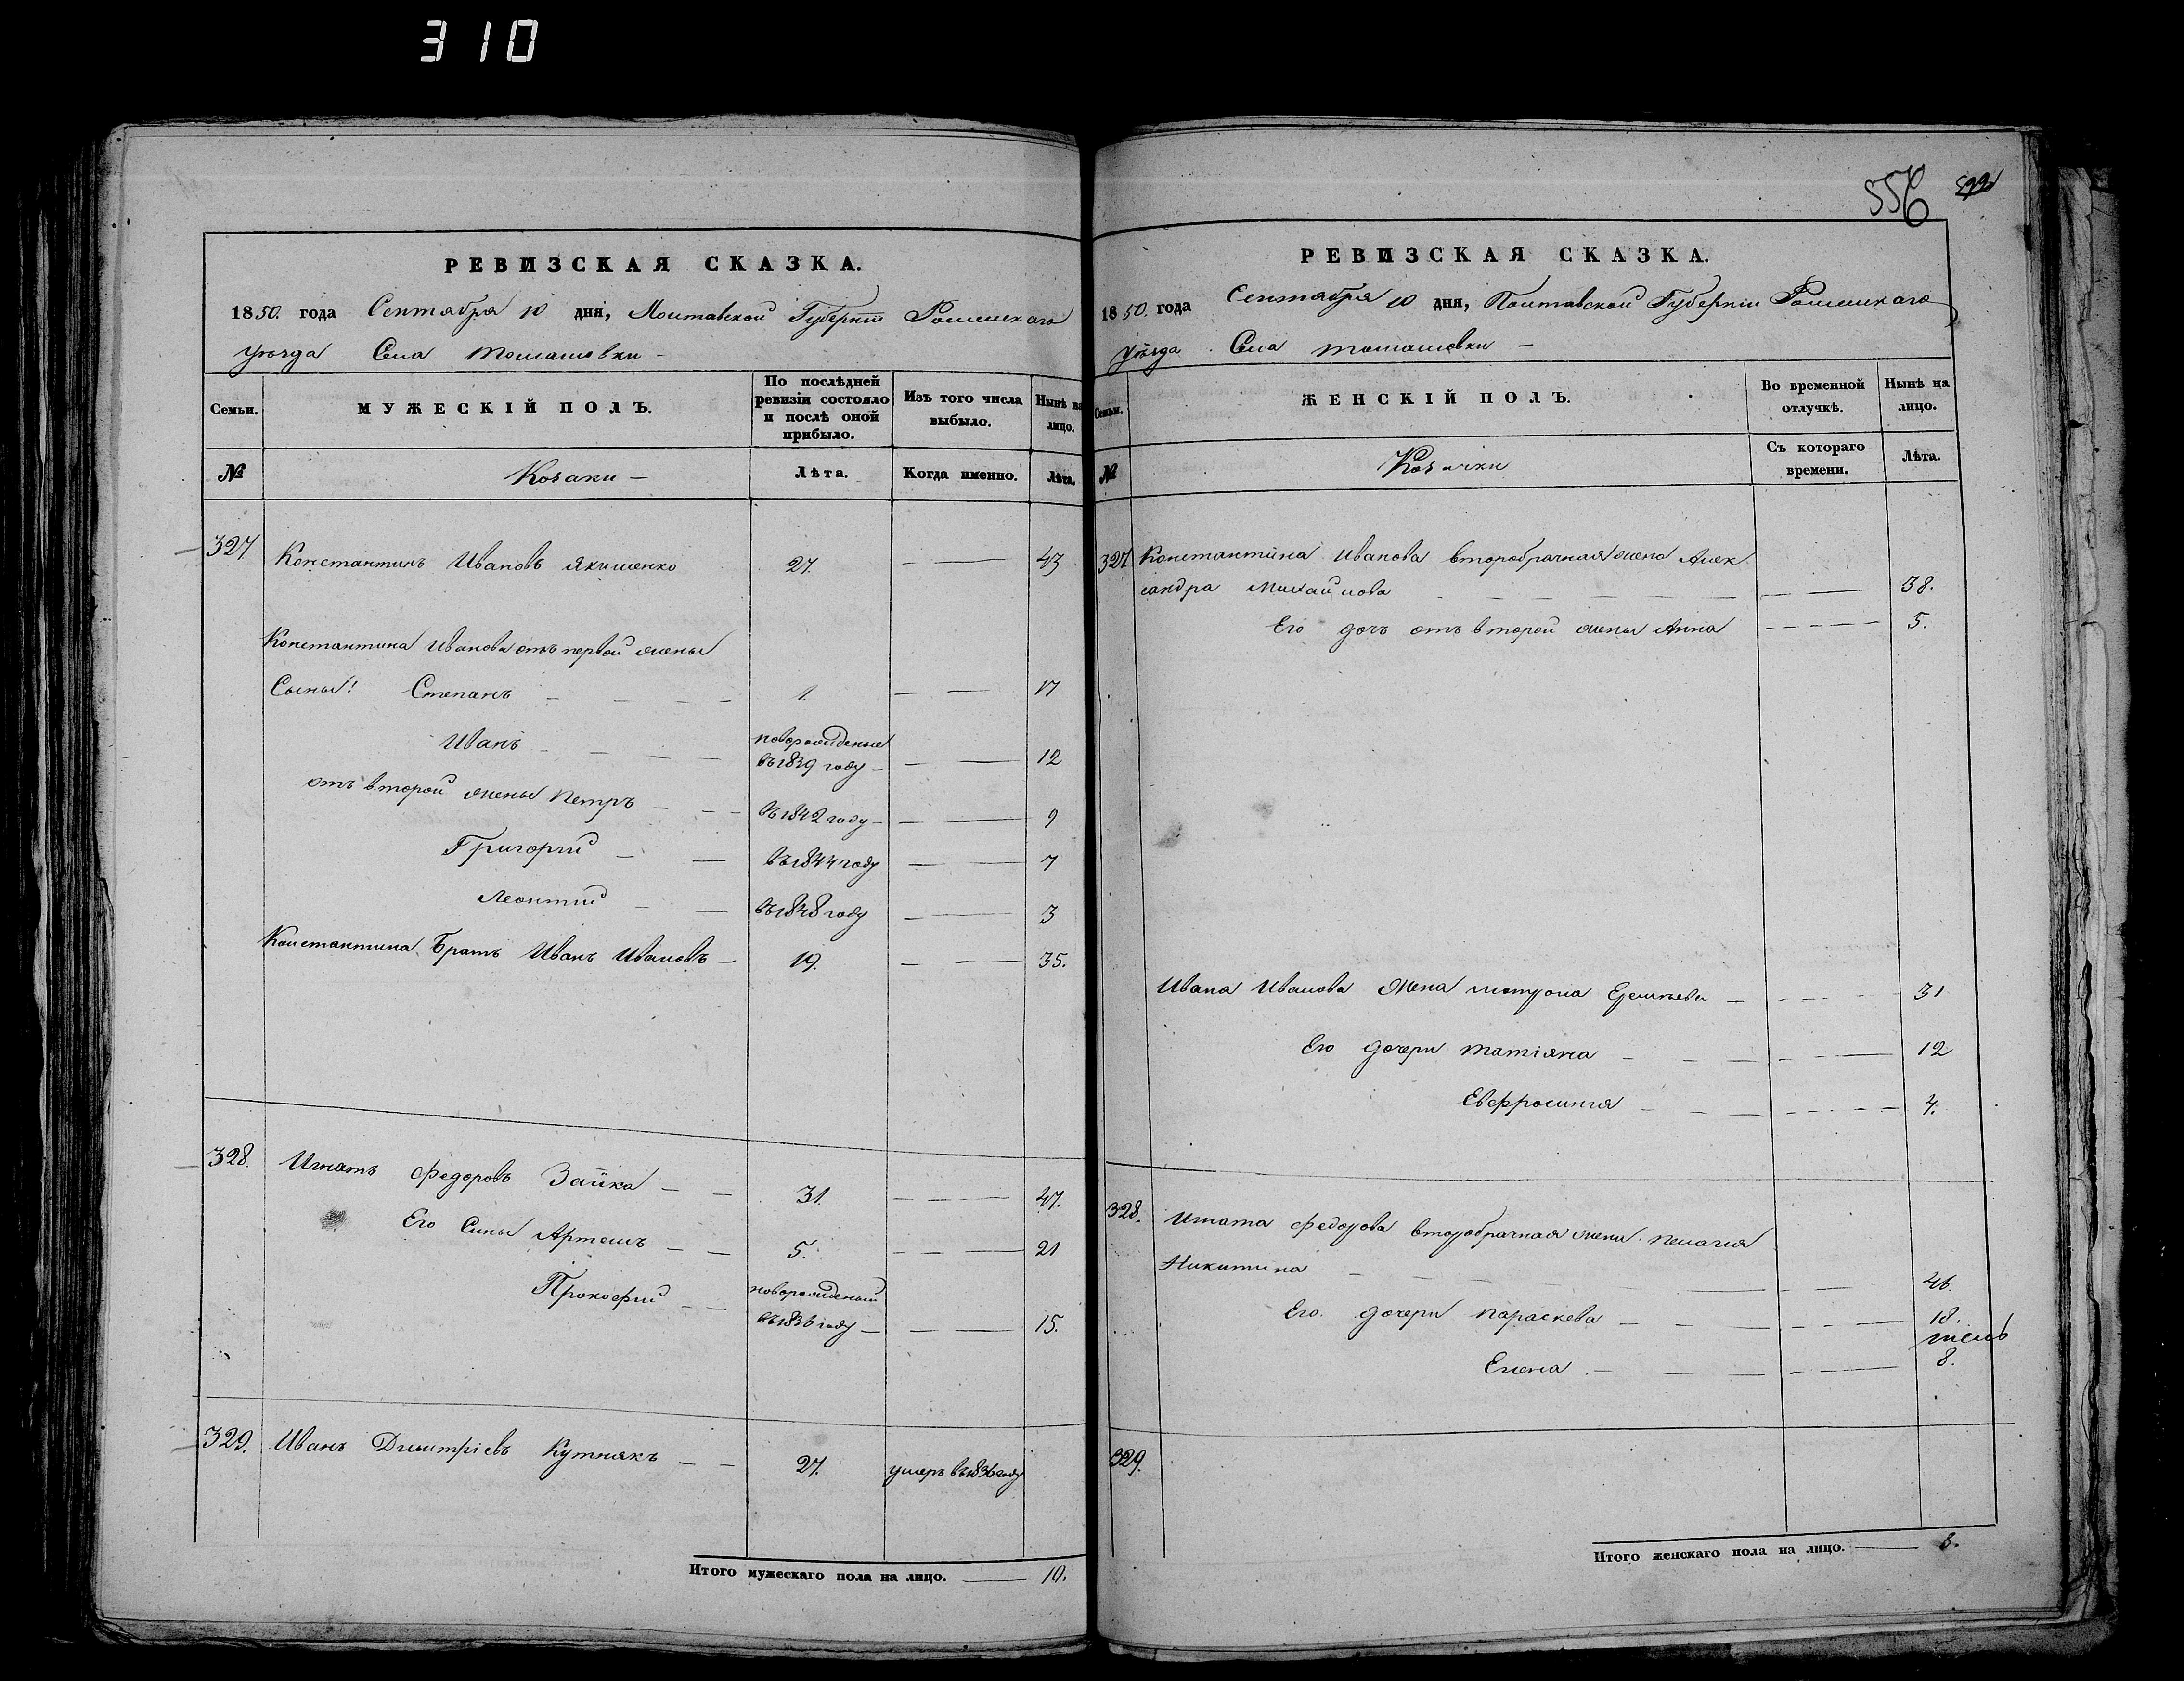 310
556
РЕВИЗСКАЯ СКАЗКА.
1850. года Сентября 10 дня, Полтавской Губернїи Роменскаго
уѣзда Села томашовки —
Семьи. МУЖЕСКІЙ ПОЛЪ. По послѣдней ревизіи состояло и послѣ оной прибыло. Изъ того числа выбыло. Нынѣ на лицо.
№ Козаки — Лѣта. Когда именно. Лѣта.
327 Константинъ Ивановъ якименко 27. — — 43
Константина Иванова отъ первой жены
Сыны! Степанъ — — — — 1. — — 17
Иванъ — — — — новорожденые въ 1839 году — — — 12
отъ второй жены петръ — — — въ 1842 году — — — 9
Григорий — — въ 1844 году — — 7
Леонтий — — въ 1848 году — — 3
Константина Братъ Иванъ Ивановъ — 19. — — — 35.
328. Игнатъ Федоровъ Заика — — 31. — — — 47.
Его Сины Артемъ — — 5. — — — 21
Прокофий — — новорожденый въ 1836 году — — — 15.
329. Иванъ Димитріевъ Кутнякъ — — 27. умеръ въ 1836 году
Итого мужескаго пола на лицо. — 10.
РЕВИЗСКАЯ СКАЗКА.
1850. года Сентября 10 дня, Полтавской Губерніи Роменскаго
уѣзда. Села томашовки —
Семьи. ЖЕНСКІЙ ПОЛЪ. Во временной отлучкѣ. Нынѣ на лицо.
№ Козачки Съ котораго времени. Лѣта.
327. Константина Иванова второбрачная жена Алек
сандра Михайлова — — — — — — — — 38.
Его дочъ отъ второй жены Анна — — — — — 5.
Ивана Иванова жена — — — — — 31
Его дочери татіяна — — — — — — 12
Евфросиния — — — — — — — — 4.
328. Игната Федорова второбрачная жена пелагия
Никитина — — — — — — — — 46.
Его дочери параскева — — — — — — 18.
Елена — — — — — — 8.
329.
Итого женскаго пола на лицо. — 8.